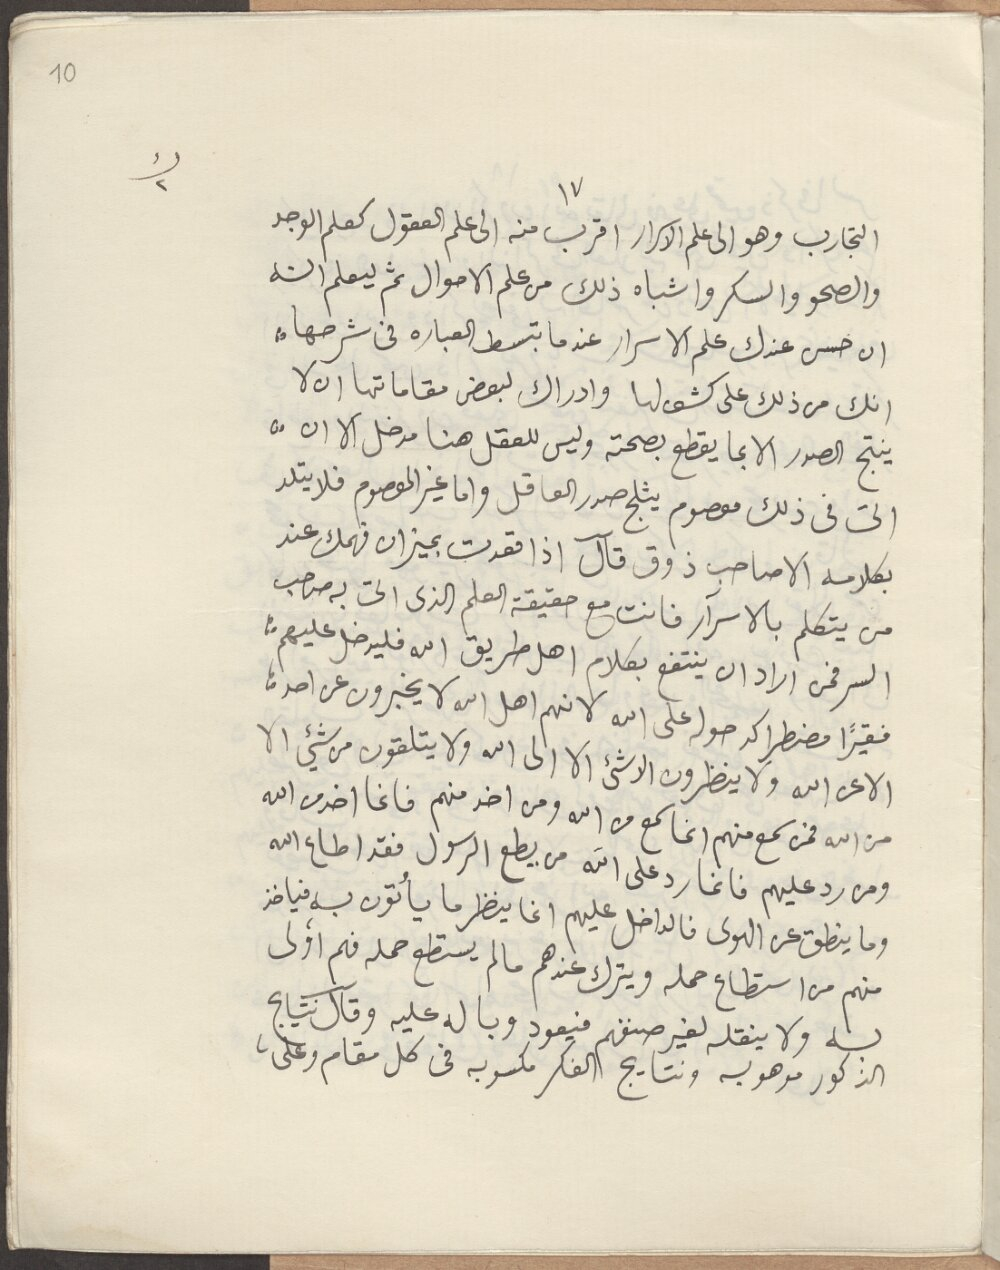 10
ك
٢
١٧
التجارب وهو الى علم الاسرار اقرب منه الى علم العقول كعلم الوجد
والصحو والسكر واشباه ذلك من علم الاحوال ثم ليعلم انه
ان حسن عندك علم الاسرار عندما تبسط العباره فى شرحها
انك من ذلك على كشف لها وادراك لبعض مقاماتها ان لا
ينتج الصدر الا بما يقطع بصحته وليس للعقل هنا مدخل الا ان
اتى فى ذلك معصوم يثلج صدر العاقل واما غير المعصوم فلا يتلد
بكلامه الا صاحب ذوق قال اذا قعدت بميزان فهمك عند
من يتكلم بالاسرار فانت مع حقيقة العلم الذى اتى به صاحب
السر فمن اراد ان ينتفع بكلام اهل طريق الله فليدخل عليهم
فقيرًا مضطرا حوله على الله لانهم اهل الله لا يخبرون عن احد
الا عن الله ولا ينظرون لا شئ الا الى الله ولا يتلقون من شئ الا
من الله فمن سمع منهم انما سمع من الله ومن اخذ منهم فانما اخذ من الله
ومن رد عليهم فانما رد على الله من يطع الرسول فقد اطاع الله
وما ينطق عن الهوى فالداخل عليهم انما ينظر ما يأتون به فياخذ
منهم من استطاع حمله ويترك عندهم ما لم يستطع حمله فهم اولى
به ولا ينقله لغير صنفهم فيعود وباله عليه وقال نتايج
الذكور موهوبه ونتايج الفكر مكسوبه فى كل مقام وعلى